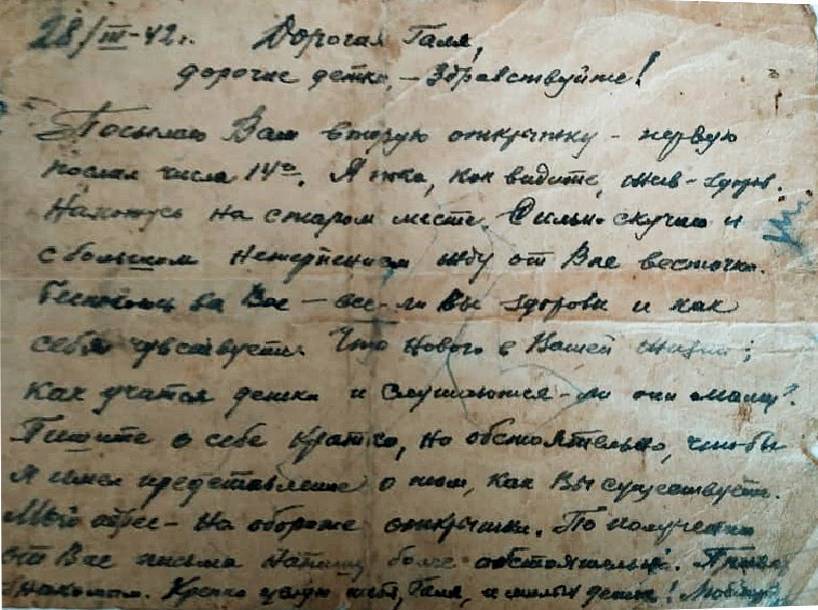 28/III-42г. Дорогая Галя,
дорогие детки, - Здравствуйте!
Посылаю Вам вторую открытку - первую
послал числа 14го. Я пока, как видите, жив-здоров.
Нахожусь на старом месте. Сильно скучаю и
с большим нетерпением жду от Вас весточки.
Беспокоюсь за Вас - все-ли вы здоровы и как
себя чувствуете. Что нового в Вашей жизни;
как учатся детки и слушаются-ли они маму?
Пишите о себе кратко, но обстоятельно, чтобы
я имел представление о том, как Вы существуете.
Мой адрес - на обороте открытки. По получении
от Вас письма напишу более обстоятельно. Привет
знакомым. Крепко целую тебя, Галя, и милых деток! Любящий